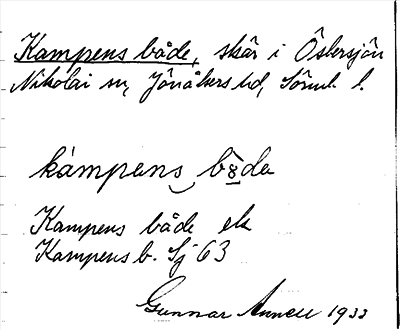 Kampens både, skär i Östersjön
Nikolai sn, Jönåkers hd, Sörml. l.
kámpens bo̲da
Kampens både ek
Kampens b. Sj 63
Gunnar Annell 1933